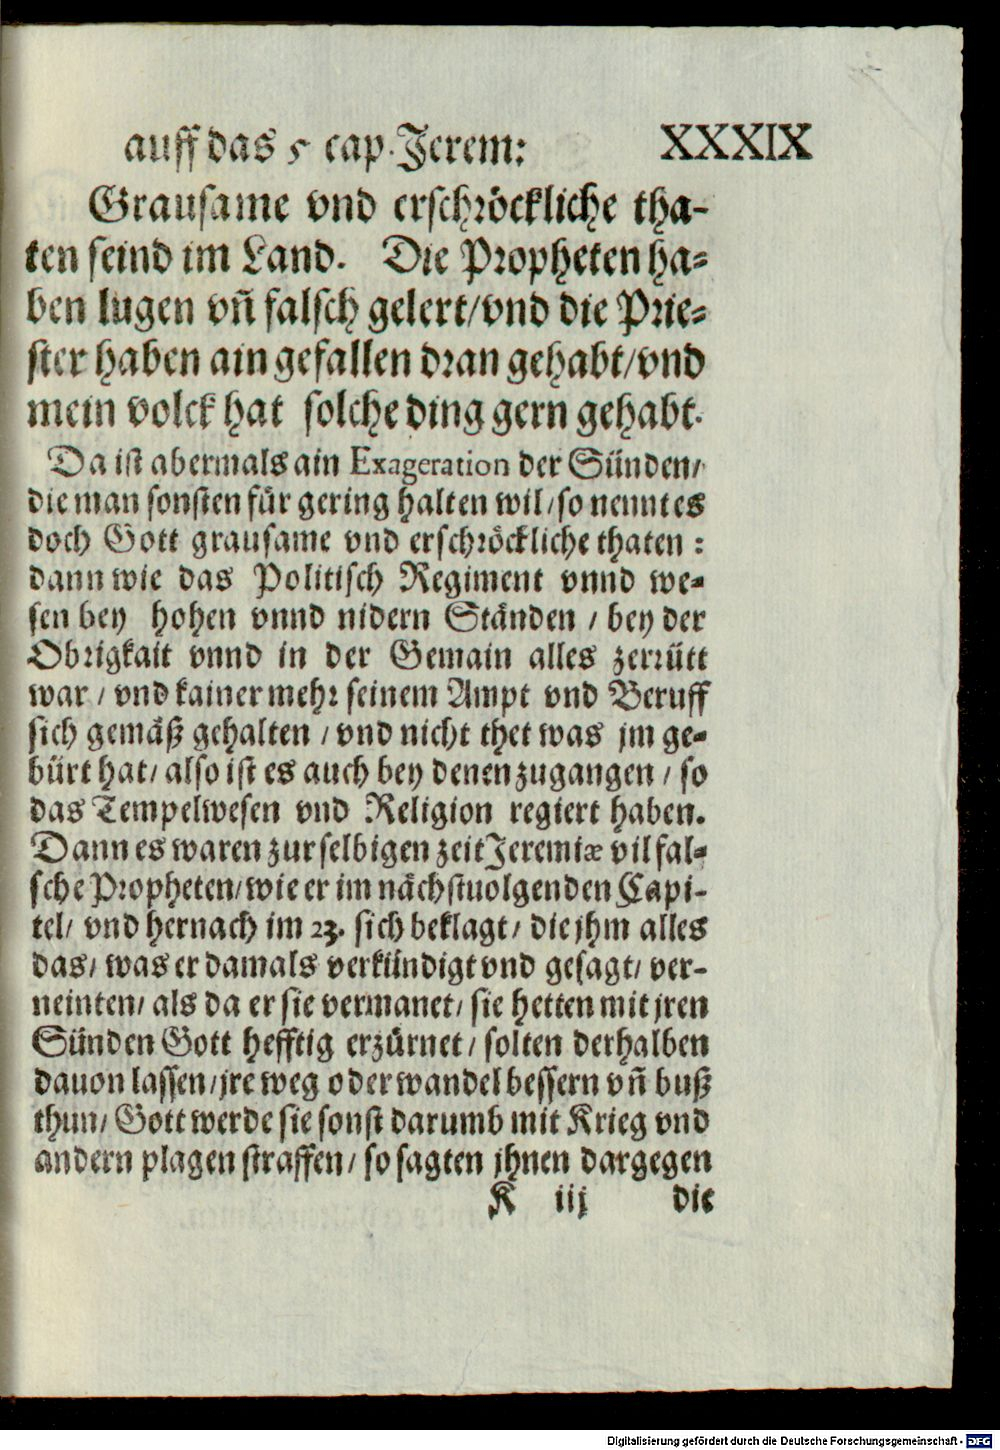 auff das 5 cap. Jerem: XXXIX
Grausame vnd erschröckliche tha-
ten seind im Land. Die Propheten ha-
ben lugen vñ falsch gelert/vnd die Prie-
ster haben ain gefallen dran gehabt/vnd
mein volck hat solche ding gern gehabt.
Da ist abermals ain Exageration der Sünden/
die man sonsten für gering halten wil/so nennt es
doch Gott grausame vnd erschröckliche thaten:
dann wie das Politisch Regiment vnnd we-
sen bey hohen vnnd nidern Ständen / bey der
Obrigkait vnnd in der Gemain alles zerrütt
war / vnd kainer mehr seinem Ampt vnd Beruff
sich gemäß gehalten / vnd nicht thet was jm ge-
bürt hat/ also ist es auch bey denen zugangen / so
das Tempelwesen vnd Religion regiert haben.
Dann es waren zur selbigen zeit Jeremiæ vil fal-
sche Propheten/wie er im nächstuolgenden Capi-
tel/ vnd hernach im 23. sich beklagt/ die jhm alles
das/ was er damals verkündigt vnd gesagt/ ver-
neinten/ als da er sie vermanet/ sie hetten mit jren
Sünden Gott hefftig erzürnet/ solten derhalben
dauon lassen/jre weg oder wandel bessern vñ buß
thun/ Gott werde sie sonst darumb mit Krieg vnd
andern plagen straffen/ so sagten jhnen dargegen
K iij die
Digitalisierung gefördert durch die Deutsche Forschungsgemeinschaft - DFG